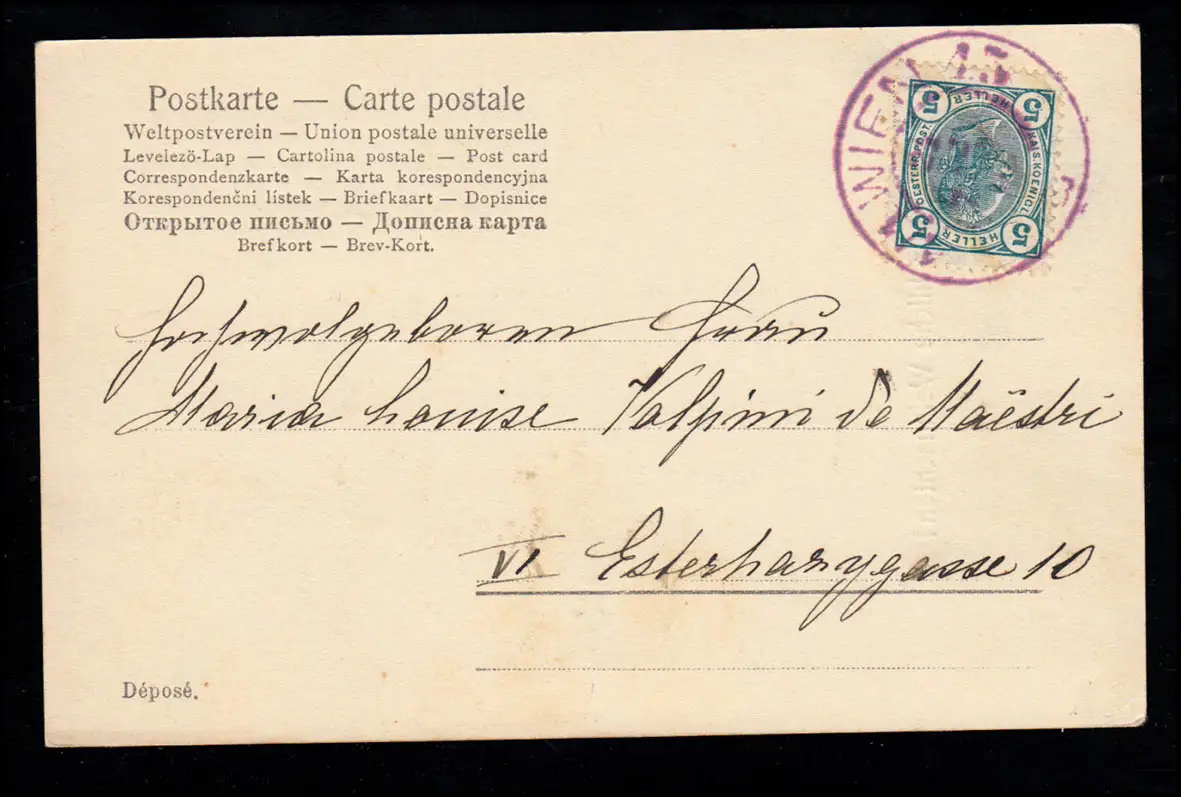 Postkarte — Carte postale
Weltpostverein — Union postale universelle
Levelező-Lap — Cartolina postale — Post card
Correspondenzkarte — Karta korespondencyjna
Korespondenční lístek — Briefkaart — Dopisnice
Открытое письмо — Дописна карта
Brefkort — Brev-Kort.
WIEN
5 HELLER 5
OESTERR. POST KAIS. KOENIGL.
5 HELLER 5
Hochwolgeboren Frau
Maria Louise Volpini de Maëstri
VI Esterhazygasse 10
Déposé.